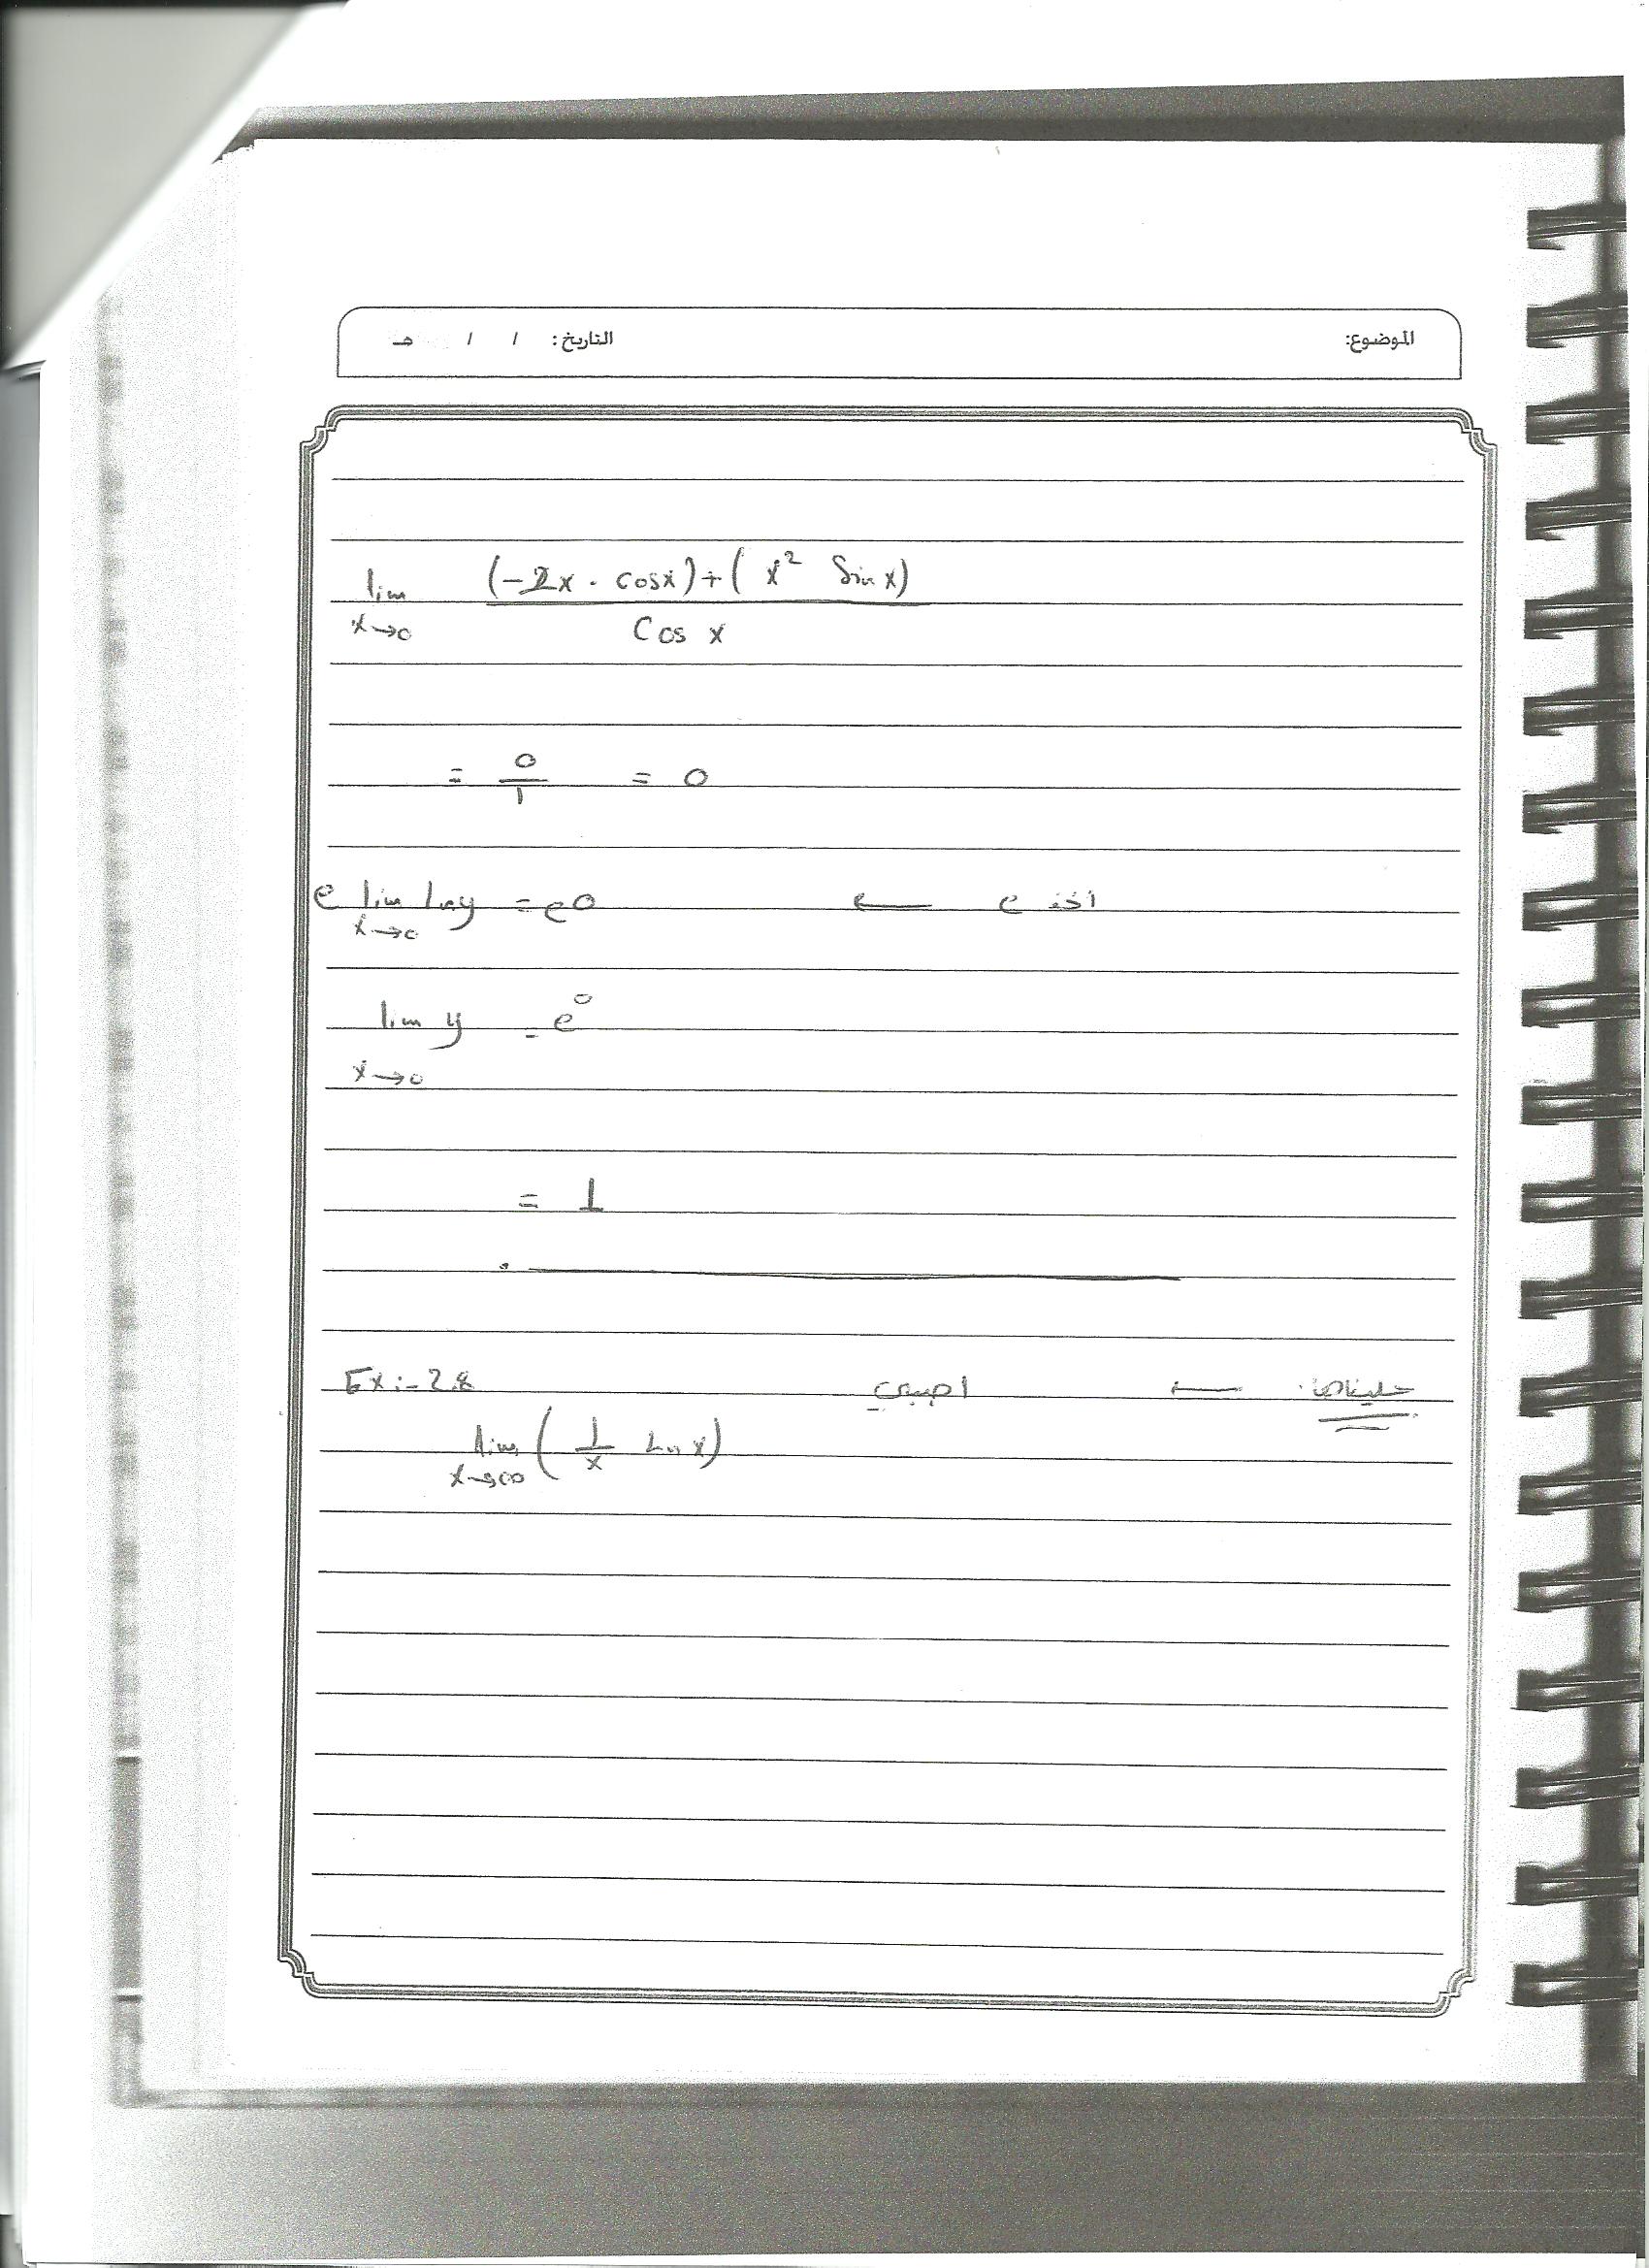 الموضوع: التاريخ: / / هـ
lim x→0 (-2x . cosx)+( x² Sin x) / Cos x
= 0/1 = 0
e lim x→0 lny = e0 ← e اخذ
lim x→0 y = e⁰
= 1
Ex:-2.8 ←
lim x→∞ ( 1/x Ln x)